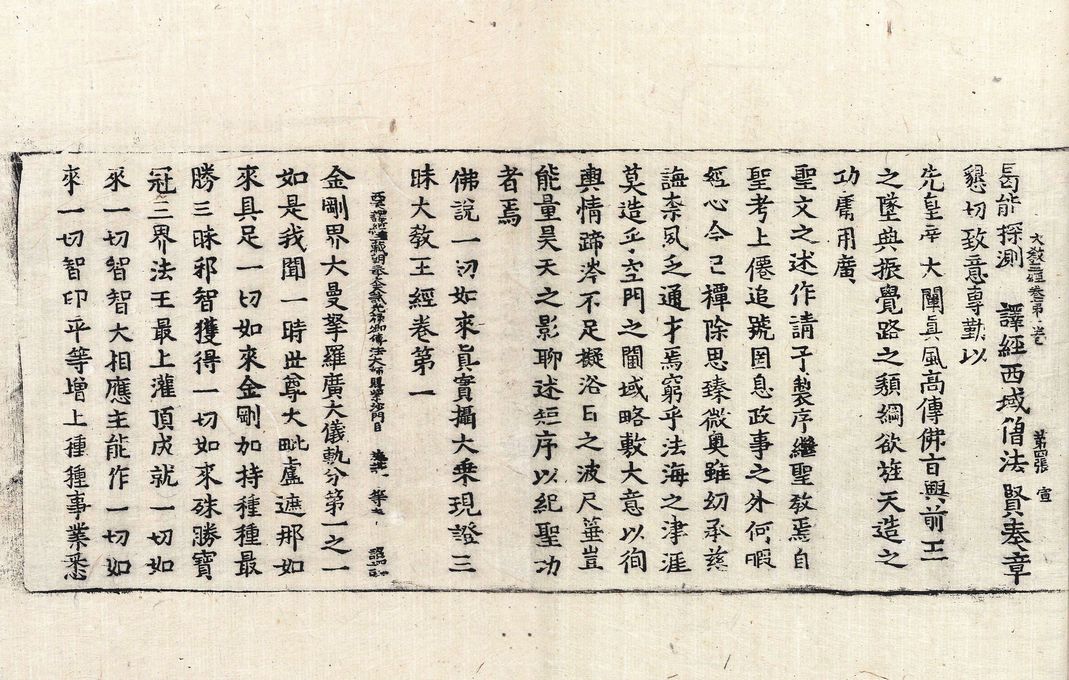 大教王經卷第一 第四張 宣
曷能探測 譯經西域僧法賢奉章
懇切致意專勤以
先皇帝大闡眞風高傳佛旨興前王
之墜典振覺路之頹綱欲旌天造之
功庸用廣
聖文之述作請予製序繼聖教焉自
聖考上僊追號罔息政事之外何暇
經心今已禫除思臻微奧雖幼承慈
誨柰夙乏通才焉窮乎法海之津涯
莫造乎空門之閫域略敷大意以徇
輿情蹄涔不足擬浴日之波尺箠豈
能量昊天之影聊述短序以紀聖功
者焉
佛說一切如來眞實攝大乘現證三
昧大教王經卷第一
西天譯經三藏朝奉大夫試光祿卿傳法大師賜紫臣施護等奉 詔譯
金剛界大曼拏羅廣大儀軌分第一之一
如是我聞一時世尊大毗盧遮那如
來具足一切如來金剛加持種種最
勝三昧邪智獲得一切如來殊勝寶
冠三界法王最上灌頂成就一切如
來一切智智大相應主能作一切如
來一切智印平等增上種種事業悉